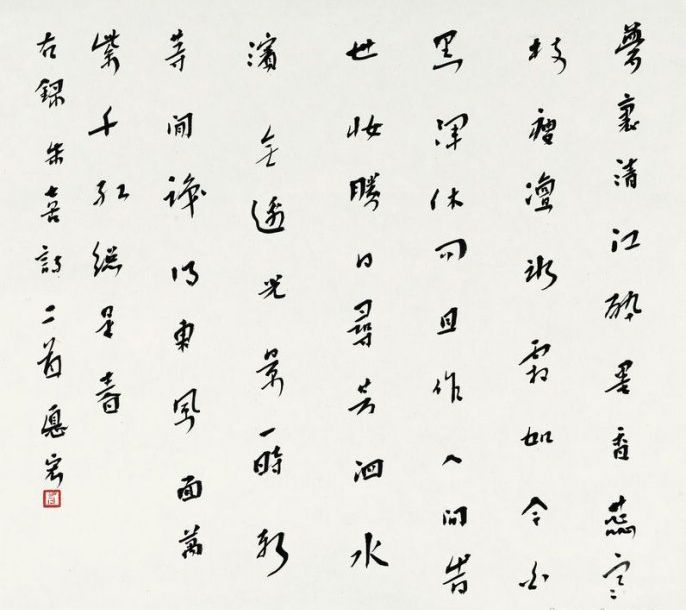 夢裏清江醉墨香蕊寒
枝瘦凜冰霜如今白
黑渾休問且作人間旹
世妝勝日尋芳泗水
濱無邊光景一時新
等閒識得東風面萬
紫千紅總是春
右録朱熹詩二首